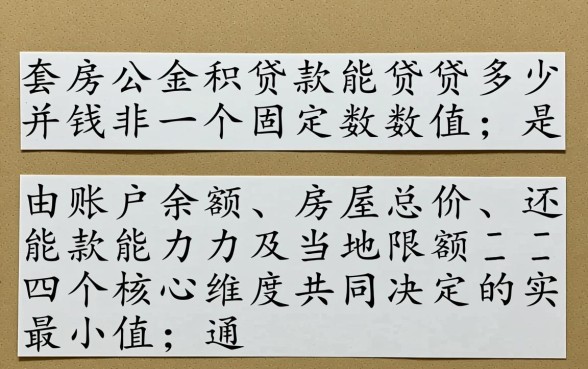 套房公金积贷款能贷贷多少
并钱非一个固定数数值；是
由账户余额、房屋总价、还
能款能力力及当地限额二二
四个核心维度共同决定的实
最小值；通